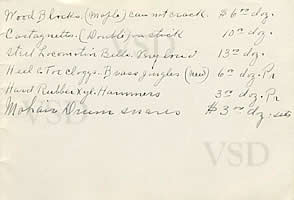 Wood Blocks. (Maple) can not crack. $6.00 doz.
Castagnettes (Double) on stick 10.00 doz.
Steel Locomotive Bells. Very loud 13.00 doz.
Heel & Toe Cloggs. Brass Jingles (new) 6.00 doz. Pr
Hard Rubber Xyl. Hammers 3.00 doz. Pr
Mohair Drum snares $3.00 doz. sets
VSD
VSD
VSD